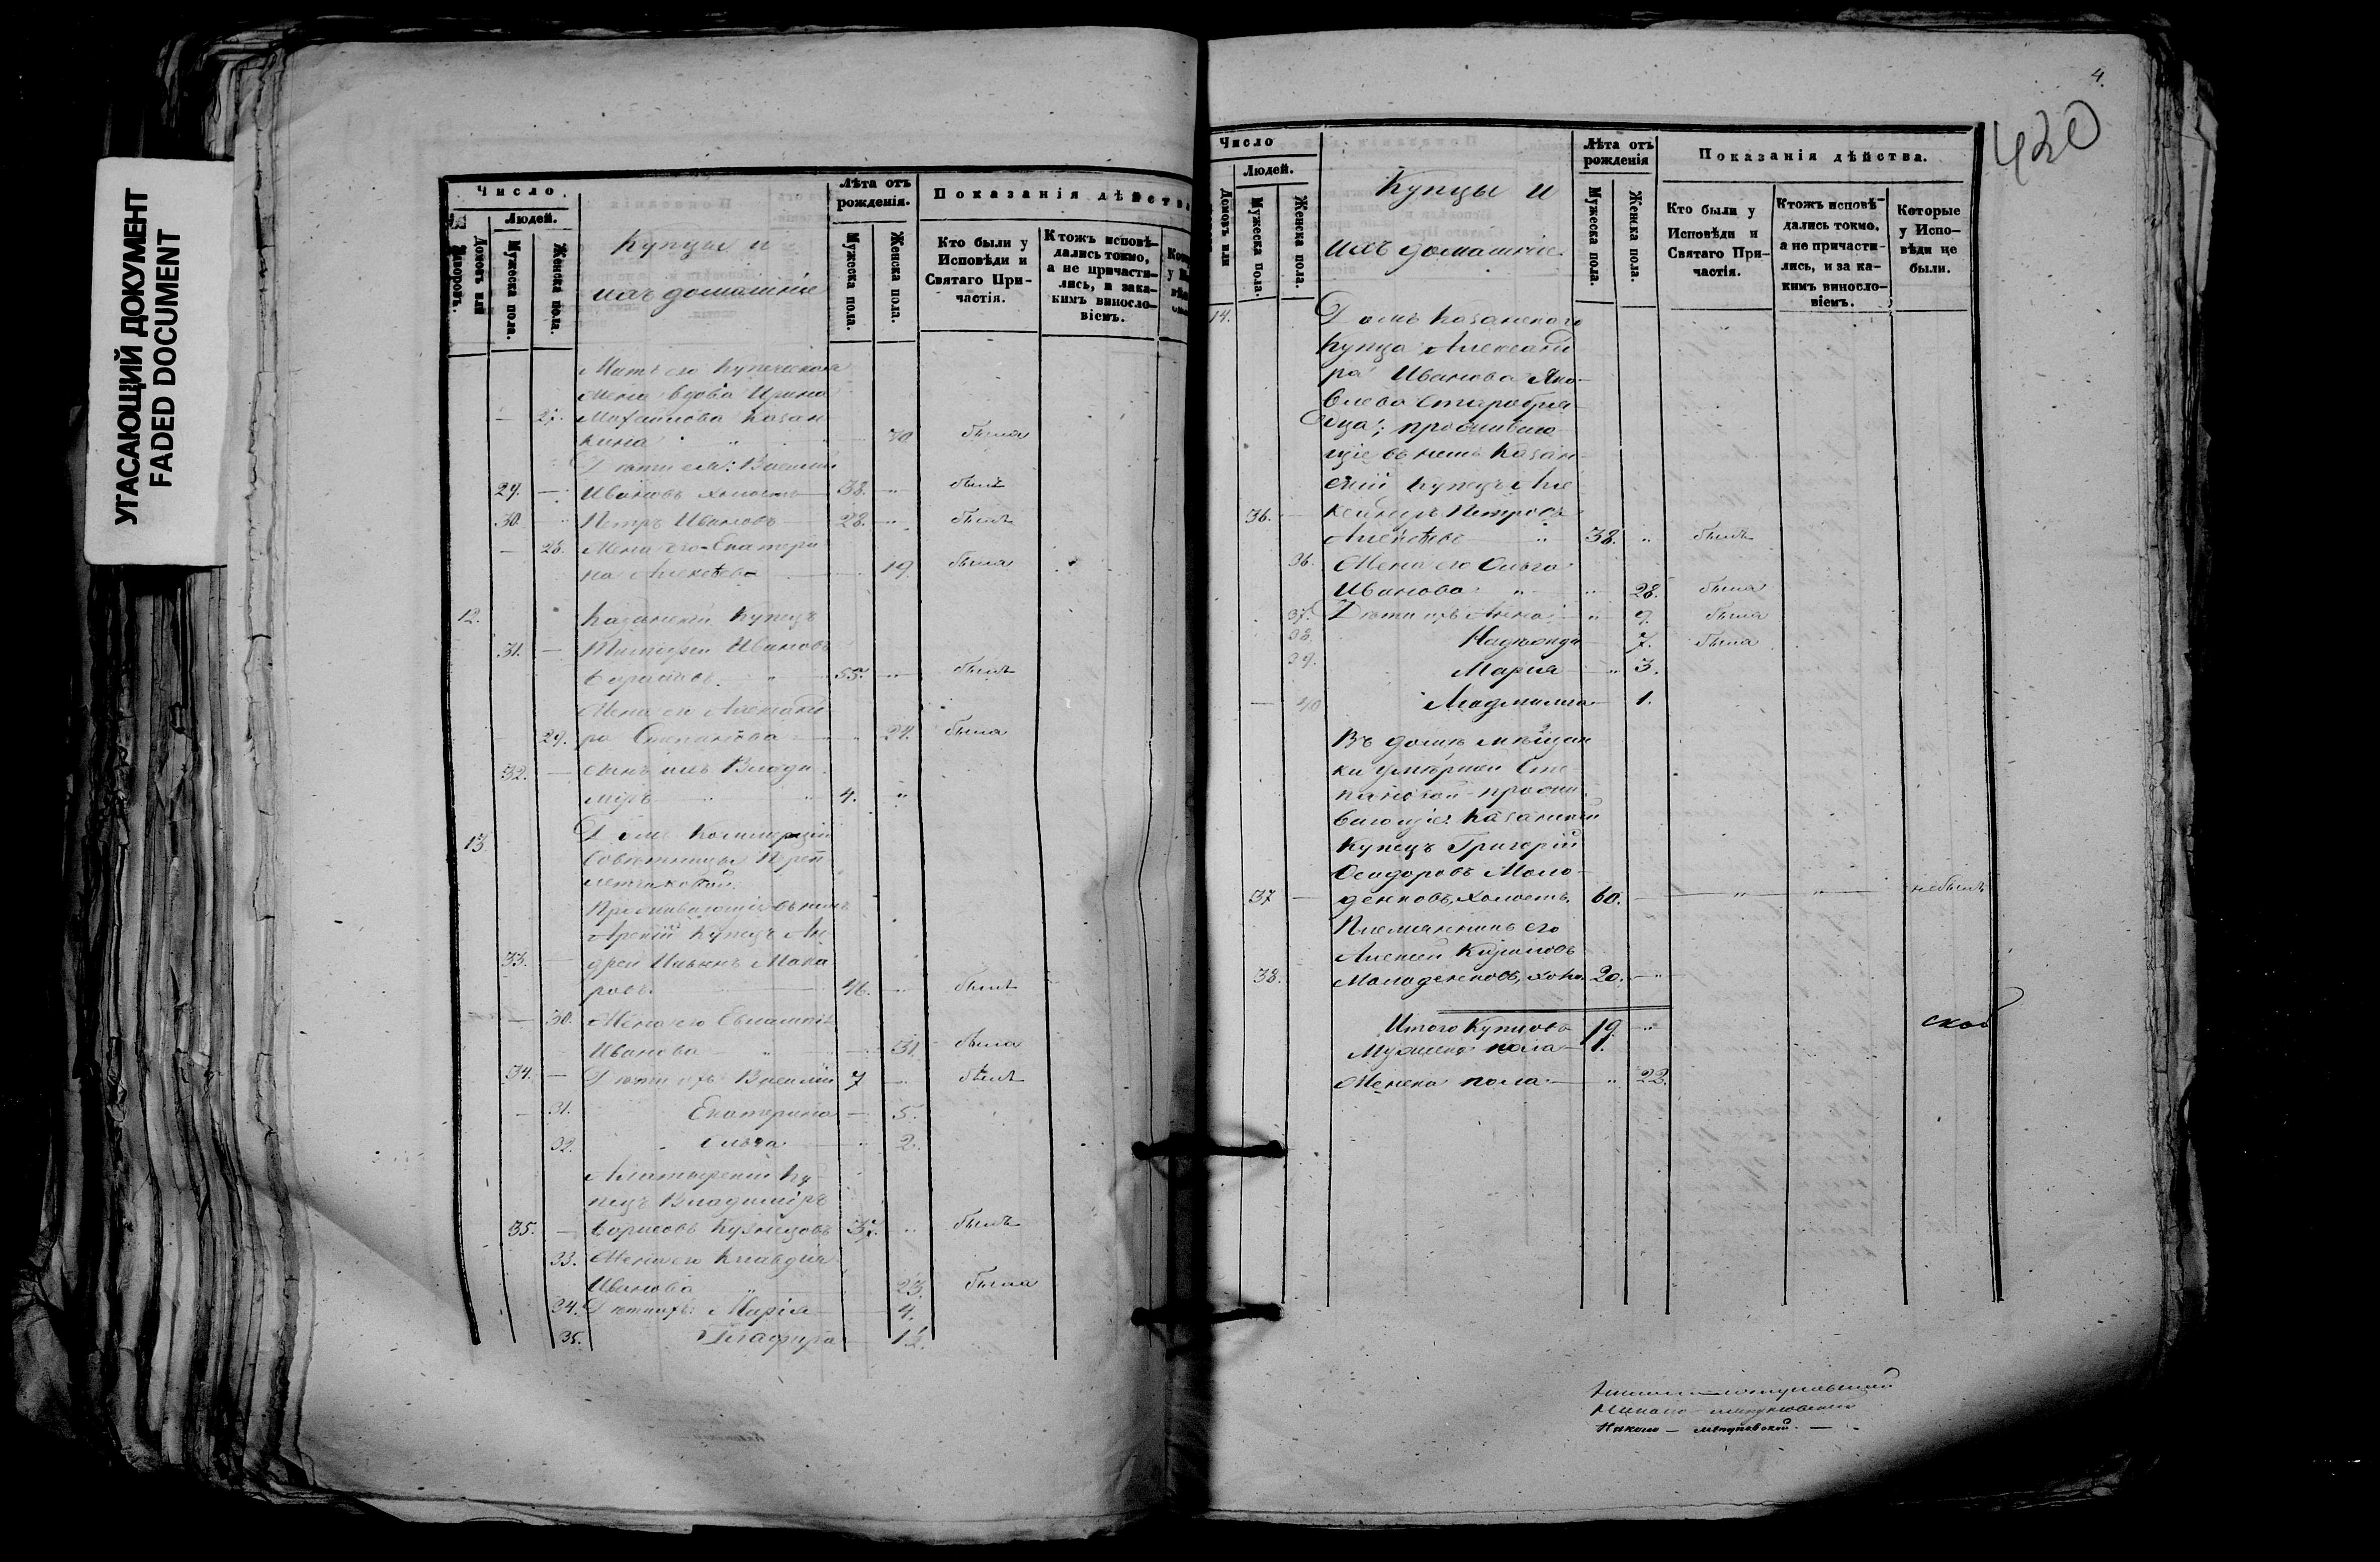 УГАСАЮЩИЙ ДОКУМЕНТ
FADED DOCUMENT
Число.
Людей.
Домовъ или дворовъ.
Мужеска пола.
Женска пола.
Купцы и
ихъ домашніе
Лѣта отъ рожденія.
Мужеска пола.
Женска пола.
Показанія дѣйства
Кто были у
Исповѣди и
Святаго При-
частія.
Ктожъ исповѣ-
дались токмо,
а не причасти-
лись, и зака-
кимъ виносло-
віемъ.
Мать его купеческая
жена вдова Ирина
— 27. Михайлова Казан
кина " 70 была
Дѣти ея: Василій
29. — Ивановъ холостъ 38. " былъ
30. " Петръ Ивановъ 28. " былъ
— 28. Жена его Екатери
на Алексѣева 19. была
12. Казанскій купецъ
31. — Тимофей Ивановъ
55. " былъ
Жена его Александ
29. ра Степанова 24. была
32. — сынъ ихъ Влади
міръ " 4. "
13. Домъ Коммерціи
Совѣтницы
Проживающіе въ немъ
Арскій купецъ Ан
33. — дрей Ильинъ Мака
ровъ. 46. былъ
— 30. Жена его Евлампія
Иванова " 31. была
34. — Дѣти ихъ Василій 7 " былъ
— 31. Екатерина — 5.
32. Ольга " 2.
Алатырскій ку
пецъ Владиміръ
35. — Борисовъ Кузнецовъ 37. " былъ
33. Жена его Клавдія
Иванова " 23. была
34. Дѣти ихъ: Марія 4.
35. Глафира
4.
420
Число
Людей.
Домовъ или
Мужеска пола.
Женска пола.
Купцы и
ихъ домашніе
Лѣта отъ
рожденія
Мужеска пола.
Женска пола.
Показанія дѣйства.
Кто были у
Исповѣди и
Святаго При-
частія.
Ктожъ исповѣ-
дались токмо,
а не причасти-
лись, и за ка-
кимъ виносло-
віемъ.
Которые
у Испо-
вѣди не
были.
14. Домъ Казанскаго
купца Александ
ра Иванова Яко-
влева Старобря-
дца; проживаю
щіе въ немъ Казан-
скій купецъ Але
36. — ксандръ Петровъ
Алексѣевъ " 38. " былъ
36. Жена его Ольга
Иванова " " 28. была
37. Дѣти ихъ Анна " 9. была
38. Надежда 7. была
39. Марія " 3.
— 40 Людмила 1.
Въ домѣ мѣщан
ки умершей Сте
пановой прожи
вающіе: Казанскій
Купецъ Григорій
Ѳеодоровъ Моло-
37 — денковъ, холостъ, 60. — " " небылъ
Племянникъ его
Алексѣй Кириловъ
38. Молоденковъ, холо. 20. — "
Итого Купцовъ 19. "
Мужеска пола 1.
Женска пола — " 22.
ской